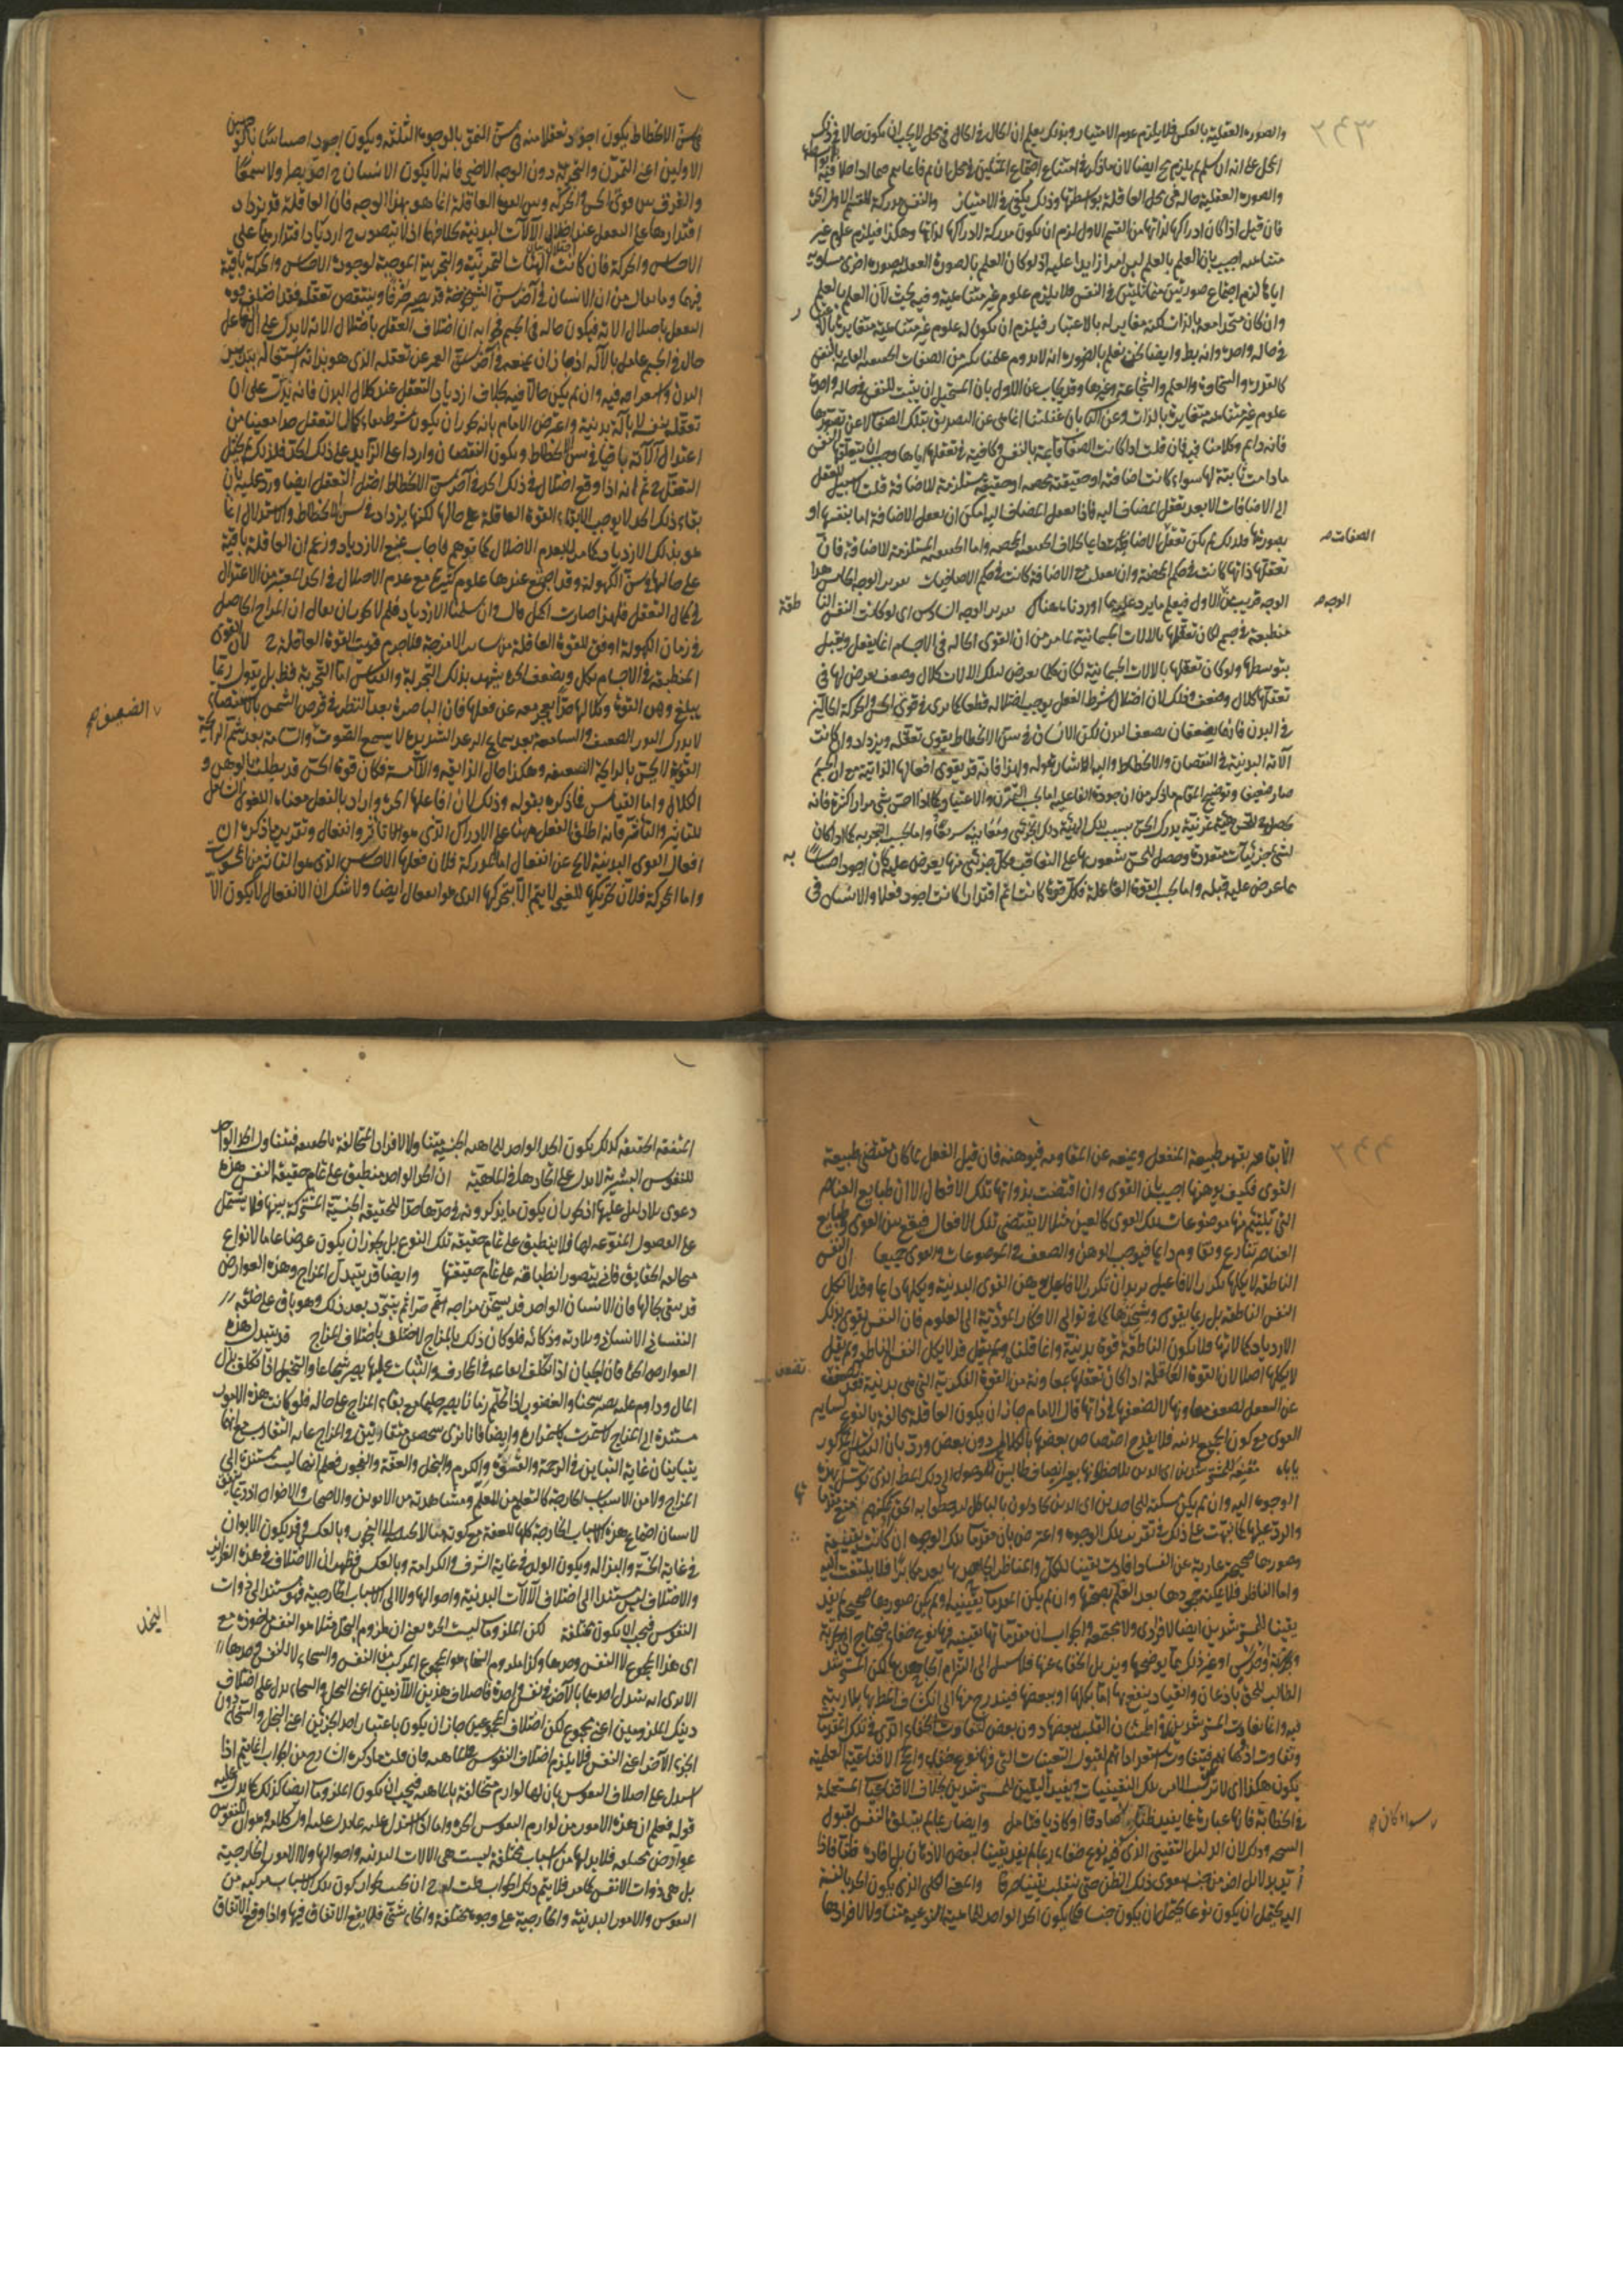 والصورة العقلية بالعكس فلا يلزم عدم الامتياز وبذلك يعلم ان الحال في الحال في محل لا يجب ان يكون حالا في ذلك
المحل على انه ان سلم لم يلزم ايضا لان ما ذكر في امتناع اجتماع المثلين في محل
والصورة العقلية حالة في محل العاقلة بواسطتها وذلك يكفي في الامتياز والنفس مدركة
فان قيل اذا كان ادراكها لذاتها من القسم الاول لزم ان تكون مدركة لادراكها لذاتها وهكذا فيلزم علوم غير
متناهية اجيب بان العلم بالعلم ليس امرا زايدا عليه اذ لو كان العلم بالصورة العقلية بصورة اخرى مساوية
اياها لزم اجتماع صورتين متماثلتين في النفس فلا يلزم علوم غير متناهية وفيه بحث لان العلم بالعلم
وان كان متحدا معه بالذات لكنه مغاير له بالاعتبار فيلزم ان يكون له علوم غير متناهية متغايرة
في حالة واحدة وانه بط وايضا نحن نعلم بالضرورة انه لا يدوم علمنا بكثير من الصفات الحقيقية القائمة بالنفس
كالقدرة والسخاوة والعلم والشجاعة وغيرها وقد يجاب عن الاول بان المستحيل ان يثبت للنفس في حالة واحدة
علوم غير متناهية متغايرة بالذات وعن الثاني بان غفلتنا انما هي عن التصديق بتلك الصفات لا عن تصورها
فانه دايم وكلامنا فيه فان قلت اذا كانت الصفات قائمة بالنفس وكافية في تعقلها اياها وجب ان يتعقلها النفس
ما دامت ثابتة لها سواء كانت اضافية او حقيقية محضة او حقيقية مستلزمة للاضافة قلت لا سبيل للعقل
الى الاضافات الا بعد تعقل المضاف اليه فاذا تعقل المضاف اليه امكن ان تعقل الاضافة اما بنفسها او
بصورتها فلذلك لم يكن تعقل الاضافيات دايما بخلاف الحقيقية المحضة واما الحقيقية المستلزمة للاضافة فان
الصفات صح
تعقلها ذاتها كانت في حكم المحضة وان تعقلت مع الاضافة كانت في حكم الاضافيات تقرير الوجه الخامس هذا
الوجه قريب من الاول فيعلم ما يرد عليه مما اوردناه هناك تقرير الوجه السادس اي لو كانت النفس النا
الوجه صح
طقة
منطبعة في جسم لكان تعقلها بالالات الجسمانية لما مر من ان القوى الحالة في الاجسام انما يفعل ويقبل
بتوسطها ولو كان تعقلها بالالات الجسمانية لكان كلما يعرض لتلك الالات كلال وضعف يعرض لها في
تعقلها كلال وضعف وذلك لان اختلال شرط الفعل يوجب اختلاله قطعا كما يرى في قوى الحس والحركة الحالتين
في البدن فانهما يضعفان بضعف البدن لكن الانسان في سن الانحطاط يقوى تعقله ويزداد وان كانت
آلاته البدنية في النقصان والانحطاط واليه الاشارة بقوله ولهذا فانه قد يقوى افعالها الذاتية مع ان الجسم
صار ضعيفا وتوضيح المقام ما ذكر من ان جودة الفاعلية اما بحسب التمرن والاعتياد كما اذا احس شيء مرارا كثيرة فانه
يحصل للحس هيئة تمرنية يدرك الحس بسبب تلك الهيئة ذلك الجزئي ومعانيه سريعا واما بحسب التجربة كما اذا كان
لشيء جزئيات متعددة وحصل للحس شعور بها على التعاقب فكل جزئي منها يعرض عليه كان اجود احساسا به
مما عرض عليه قبله واما بحسب القوة الفاعلة فكل قوة كانت اتم اقتدارا كانت اجود فعلا والانسان في
في سن الانحطاط يكون اجود تعقلا منه في سن النمو بالوجوه الثلثة ويكون اجود احساسا بالوجهين
الاولين اعني التمرن والتجربة دون الوجه الاخير فانه لا يكون الانسان ح احد بصرا ولا سمعا
والفرق بين قوتي الحس والحركة وبين القوة العاقلة انما هو بهذا الوجه فان العاقلة قد يزداد
اقتدارها على التعقل عند اختلال الآلات البدنية بخلافهما اذ لا يتصور ح ازدياد اقتدارهما على
الاحساس والحركة فان كانت الهيئات التمرنية والتجربية الموجبة لجودة الاحساس والحركة باقية
فيهما وما يقال من ان الانسان في آخر سن الشيخوخة قد يصير خرفا وينتقص تعقله فقد اختلت قوة
التعقل باختلال الآلة فيكون حالة في الجسم فجوابه ان اختلاف العقل باختلال الآلة لا يدل على ان
حال في الجسم عامل بالآلة اذ جاز ان يمنعه في آخر سن العمر عن تعقله الذي هو بذاته اشتغاله بتدبير
البدن واستغراقه فيه وان لم يكن حالا فيه بخلاف ازدياد التعقل عند كلال البدن فانه يدل على ان
تعقله بنفسه لا بآلة بدنية واعترض الامام بانه يجوز ان يكون شرطها في كمال التعقل حدا معينا من
اعتدال آلاته باقيا في سن الانحطاط ويكون النقصان واردا على الزايد على ذلك الحد فلذلك لم يختل
التعقل ح ثم انه اذا وقع اختلال في ذلك الحد في آخر سن الانحطاط اختل التعقل ايضا ورد عليه بان
بقاء ذلك الحد لا يوجب الا بقاء القوة العاقلة على حالها لكنها يزداد في سن الانحطاط والاستدلال انما
هو بذلك الازدياد كما مر لا بعدم الاختلال كما توهم فاجاب بمنع الازدياد وزعم ان العاقلة باقية
على حالها في سن الكهولة وقد اجتمع عندها علوم كثيرة مع عدم الاختلال في الحد المعتبر من الاعتدال
في كمال التعقل فلهذا صارت اكمل قال وان سلمنا الازدياد فلم لا يجوز ان يقال ان المزاج الحاصل
في زمان الكهولة اوفق للقوة العاقلة من ساير الامزجة فلا جرم قويت القوة العاقلة ح لان القوى
المنطبعة في الاجسام تكل وتضعف يشهد بذلك التجربة والقياس اما التجربة فظ بل نقول ربما
يبلغ وهن القوة وكلالها حدا يعجز معه عن فعلها فان الباصرة بعد النظر في قرص الشمس بالاستقصاء
لا يدرك النور الضعيف والسامعة بعد سماع الرعد الشديد لا يسمع الصوت والشامة بعد شم الرايحة
الضعيف صح
القوية لا يحس بالرايحة الضعيفة وهكذا حال الذايقة واللامسة فكان قوة الحس قد بطلت بالوهن و
الكلال واما القياس فما ذكره بقوله وذلك لان افاعيلها الخ واراد بالفعل معناه اللغوي الشامل
للتاثير والتأثر فانه اطلق الفعل ههنا على الادراك الذي هو تأثر وانفعال وتقرير ما ذكره ان
افعال القوى البدنية لا يخ عن انفعال اما المدركة فلان فعلها الاحساس الذي هو التاثر من المحسوسات
واما المحركة فلان تحريكها للغير لا يتم الا بتحركها الذي هو انفعال ايضا ولا شك ان الانفعال لا يكون الا
الا بقاهر يقهر طبيعة المنفعل ويمنعه عن المقاومة فيوهنه فان قيل الفعل لما كان مقتضى طبيعة
القوى فكيف يوهنها اجيب بان القوى وان اقتضت بذواتها تلك الافعال الا ان طبايع العناصر
التي تلتئم منها موضوعات تلك القوى كالعين مثلا لا يقتضي تلك الافعال فيقع بين القوى وطبايع
العناصر تنازع وتقاوم دايما فيوجب الوهن والضعف في الموضوعات والقوى جميعا ان النفس
الناطقة لا يكلها تكرر الافاعيل يريد ان تكرر الافاعيل يوهن القوى البدنية ويكلها دايما وقد لا يكل
النفس الناطقة بل ربما يقوي ويشحذها كما في توالي الافكار المؤدية الى العلوم فان النفس يقوى بذلك
الازدياد كمالاتها فلا يكون الناطقة قوة بدنية وانما قلنا قد لا يكل النفس الناطقة ولم يقل
لا يكلها اصلا لان القوة العاقلة اذا كان تعقلها بمعاونة من القوة الفكرية التي هي بدنية فقد
تضعف
عن التعقل لضعف معاونها لا لضعفها في ذاتها قال الامام جاز ان يكون العاقلة مخالفة بالنوع لساير
القوى مع كون الجميع بدنية فلا يقدح اختصاص بعضها بالكلال دون بعض ورد بان القياس المذكور
ياباه مقنعة للمسترشدين اي الذين يلاحظونها بعين الانصاف طالبين للوصول الى ذلك المطلب الذي يتوسل بهذه
الوجوه اليه وان لم يكن مسكتة للجاحدين اي الذين يجادلون بالباطل ليدحضوا به الحق
والرد عليها كما نبهت على ذلك في تقرير تلك الوجوه واعترض بان مقدمات تلك الوجوه ان كانت يقينية
وصورها صحيحة عارية عن الفساد افادت يقينا للكل والمناظر الجاحد لها يعد مكابرا فلا يلتفت اليه
واما الناظر فلا يمكنه جحدها بعد العلم بصحتها وان لم يكن المقدمات يقينية او لم يكن صورها صحيحة لم يفد
يقينا للمسترشدين ايضا لا فرادى ولا مجتمعة والجواب ان مقدماتها يقينية فيها نوع خفاء فيحتاج الى تجربة
وحدس او غير ذلك مما يوضحها ويزيل الخفاء عنها فلا سبيل الى الزام الجاحدين بها لكن المسترشد
الطالب للحق باذعان وانقياد ينتفع بها اما بكلها او ببعضها فيتدرج منها الى انكشاف المطلوب بلا ريبة
فيه وانما يتفاوت المسترشدين في اطمئنان القلب ببعضها دون بعض لتفاوت الخفاء الذي في تلك المقدمات
وتفاوت اذهانهم وتفاوت استعداداتهم لقبول اليقينيات التي فيها نوع خفاء والحجج الاقناعية العلمية
يكون هكذا اي لا تركب الا من تلك اليقينيات ويفيد اليقين للمسترشدين بخلاف الاقناعيات المستعملة
في الخطابة فانها عبارة عما يفيد ظنا صادقا او كاذبا فتامل وايضا ربما لم يتهيأ النفس لقبول
سواء كان صح
النتيجة وذلك لان الدليل اليقيني الذي فيه نوع خفاء ربما لم يفد يقينا لبعض الاذهان بل افاده ظنا فاذا
أيد بدلايل اخر من جنسه يقوى ذلك الظن حتى ينقلب يقينا صرفا والمعنى الكلي الذي يكون الحد بالنسبة
اليه يحتمل ان يكون نوعا ويحتمل ان يكون جنسا فكما يكون الحد الواحد للماهية النوعية متناولا لافرادها
المتفقة الحقيقة كذلك يكون الحد الواحد للماهية الجنسية متناولا لافرادها المختلفة بالحقيقة فتناول الحد الواحد
للنفوس البشرية لا يدل على اتحادها في الماهية ان الحد الواحد منطبق على تمام حقيقة النفس هذه
دعوى بلا دليل عليها اذ يجوز ان يكون ما يذكرونه في حدها حدا للحقيقة الجنسية المشتركة بينها فلا يشتمل
على الفصول المنوعة لها فلا ينطبق على تمام حقيقة تلك النوع بل يجوز ان يكون عرضا عاما لانواع
متخالفة الحقايق فاني يتصور انطباقه على تمام حقيقتها وايضا قد يتبدل المزاج وهذه العوارض
قد تبقى بحالها فان الانسان الواحد قد يسخن مزاجه اتم ثم يتبرد بعد ذلك وهو باق على خلقه
النفساني وبلادته وذكائه فلو كان ذلك بالمزاج لاختلف باختلاف المزاج قد يتبدل هذه
العوارض الخ فان الجبان اذا تكلف القاعدة في المخاوف والثبات عليها يصير شجاعا والبخيل اذا تكلف بذل
المال وداوم عليه يصير سخيا والغضوب اذا تحلم زمانا يصير حليما مع بقاء المزاج على حاله فلو كانت هذه الامور
مستندة الى المزاج لاستمرت باستمراره وايضا فانا نرى شخصين متقاربين في المزاج غاية التقارب مع انهما
يتباينان غاية التباين في الرحمة والقسوة والكرم والبخل والعفة والفجور فعلم انها ليست مستندة الى
المزاج ولا من الاسباب الخارجة كالتعليم من المعلم ومشاهدته من الابوين والاصحاب والاخوان اذ ربما يتفق
لانسان اجتماع هذه الاسباب الخارجة كلها للعفة مع كونه الى الفجور وبالعكس وقد يكون الابوان
في غاية الخسة والنذالة ويكون الولد في غاية الشرف والكرامة وبالعكس فظهر ان الاختلاف في هذه الغرايز
والاختلاف ليس مستندا الى اختلاف الآلات البدنية واحوالها ولا الى الاسباب الخارجية فهو مستند الى ذوات
النفوس فيجب ان يكون مختلفة لكن الملزومات ليست الخ يعني ان ملزوم البخل مثلا هو النفس ماخوذة مع
البخل
اي هذا المجموع لا النفس وحدها وكذا ملزوم السخاء هو المجموع المركب من النفس والسخاء لا النفس وحدها
الا يرى انه يتبدل احدهما بالآخر في نفس واحدة فاختلاف هذين اللازمين اعني البخل والسخاء يدل على اختلاف
ذينك الملزومين اعني المجموع لكن اختلاف المجموعين جاز ان يكون باعتبار احد الجزئين اعني البخل والسخاء دون
الجزء الآخر اعني النفس فلا يلزم اختلاف النفوس بالماهية فان قلت ما ذكره الشارح من الجواب انما يتم اذا
استدل على اختلاف النفوس بان لها لوازم متخالفة بالماهية فيجب ان يكون الملزومات ايضا كذلك كما يدل عليه
قوله فيعلم ان هذه الامور من لوازم النفوس الخ واما اذا استدل عليه بما دل عليه اول كلامه وهو ان للنفوس
عوارض مختلفة فلا بد لها من اسباب مختلفة ليست هي الالات البدنية واحوالها ولا الامور الخارجية
بل هي ذوات الانفس كما مر فلا يتم ذلك الجواب قلت لم لا يجوز ان يكون تلك الاسباب مركبة من
النفوس والامور البدنية والخارجية على وجوه مختلفة وانحاء شتى فلا يقع الاتفاق فيها واذا وقع الاتفاق